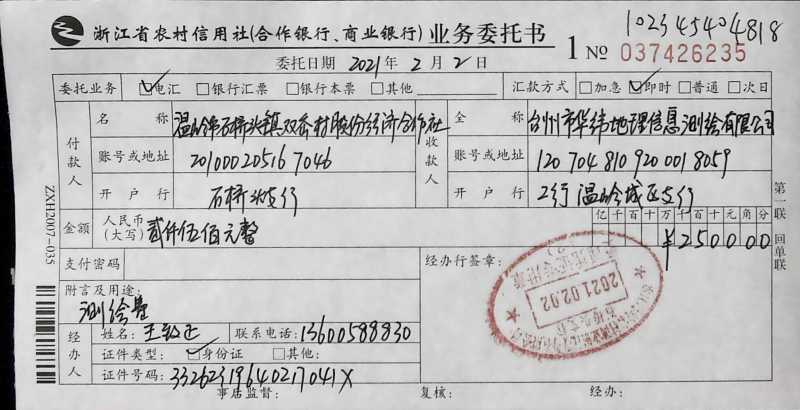 浙江省农村信用社(合作银行、商业银行) 业务委托书
102345404818
1 № 037426235
委托日期 2021 年 2 月 2 日
委托业务 ☑电汇 □银行汇票 □银行本票 □其他
汇款方式 □加急 ☑即时 □普通 □次日
付款人
名称 温岭市石桥头镇双岙村股份经济合作社
账号或地址 201000205167046
开户行 石桥头支行
收款人
全称 台州市华纬地理信息测绘有限公司
账号或地址 1207048109200018059
开户行 工行温岭城区支行
金额 人民币(大写) 贰仟伍佰元整
亿千百十万千百十元角分
¥250000
支付密码
经办行签章:
附言及用途:
测绘费
2021.02.02
经办人
姓名: 联系电话: 13600588830
证件类型: ☑身份证 □其他:
证件号码: 33262319640217041X
事后监督: 复核: 经办:
第一联 回单联
ZXH2007-035